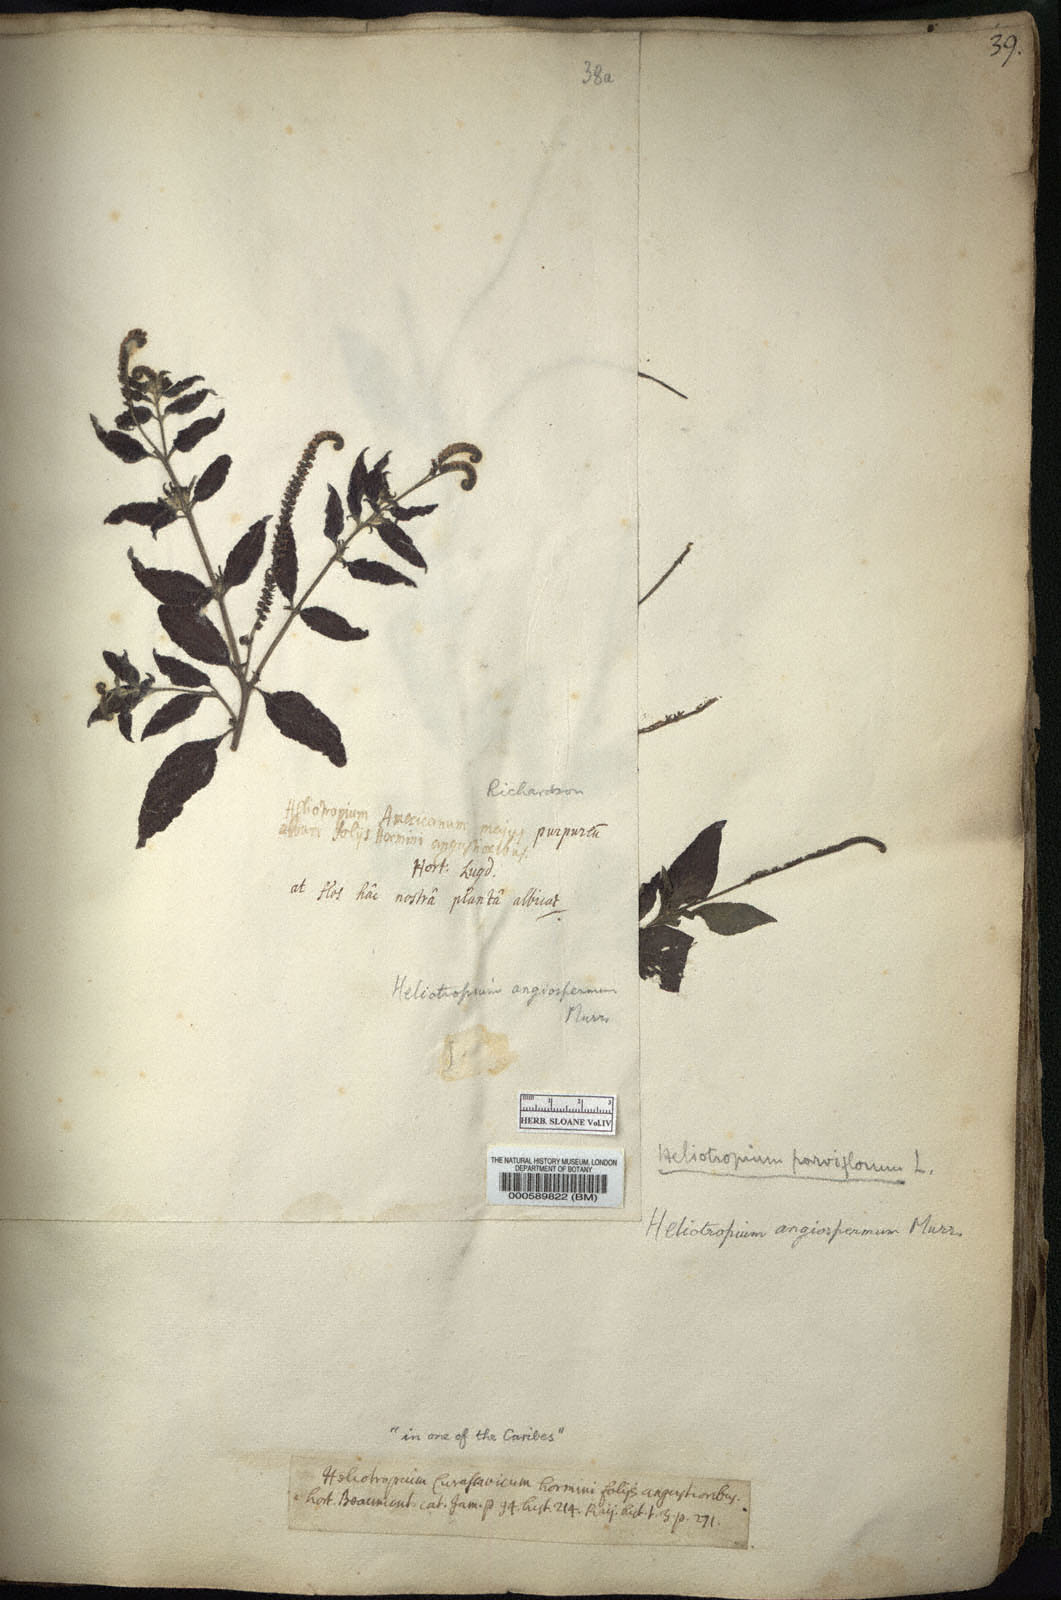 39.
38a
Richardson
Heliotropium Americanum majus purpureũ
album folijs Hormini angustioribus.
Hort: Lugd.
at flos hâc nostrâ plantâ albicat
Heliotropium angiospermum
Murr.
HERB. SLOANE Vol.IV
THE NATURAL HISTORY MUSEUM, LONDON
DEPARTMENT OF BOTANY
000589822 (BM)
Heliotropium parviflorum L.
Heliotropium angiospermum Murr.
"in one of the Caribes"
Heliotropium Curassavicum hormini folijs angustioribus.
hort. Beaumont cat. Jam. p 94. hist. 214. Raij. hist. t. 3. p. 271.